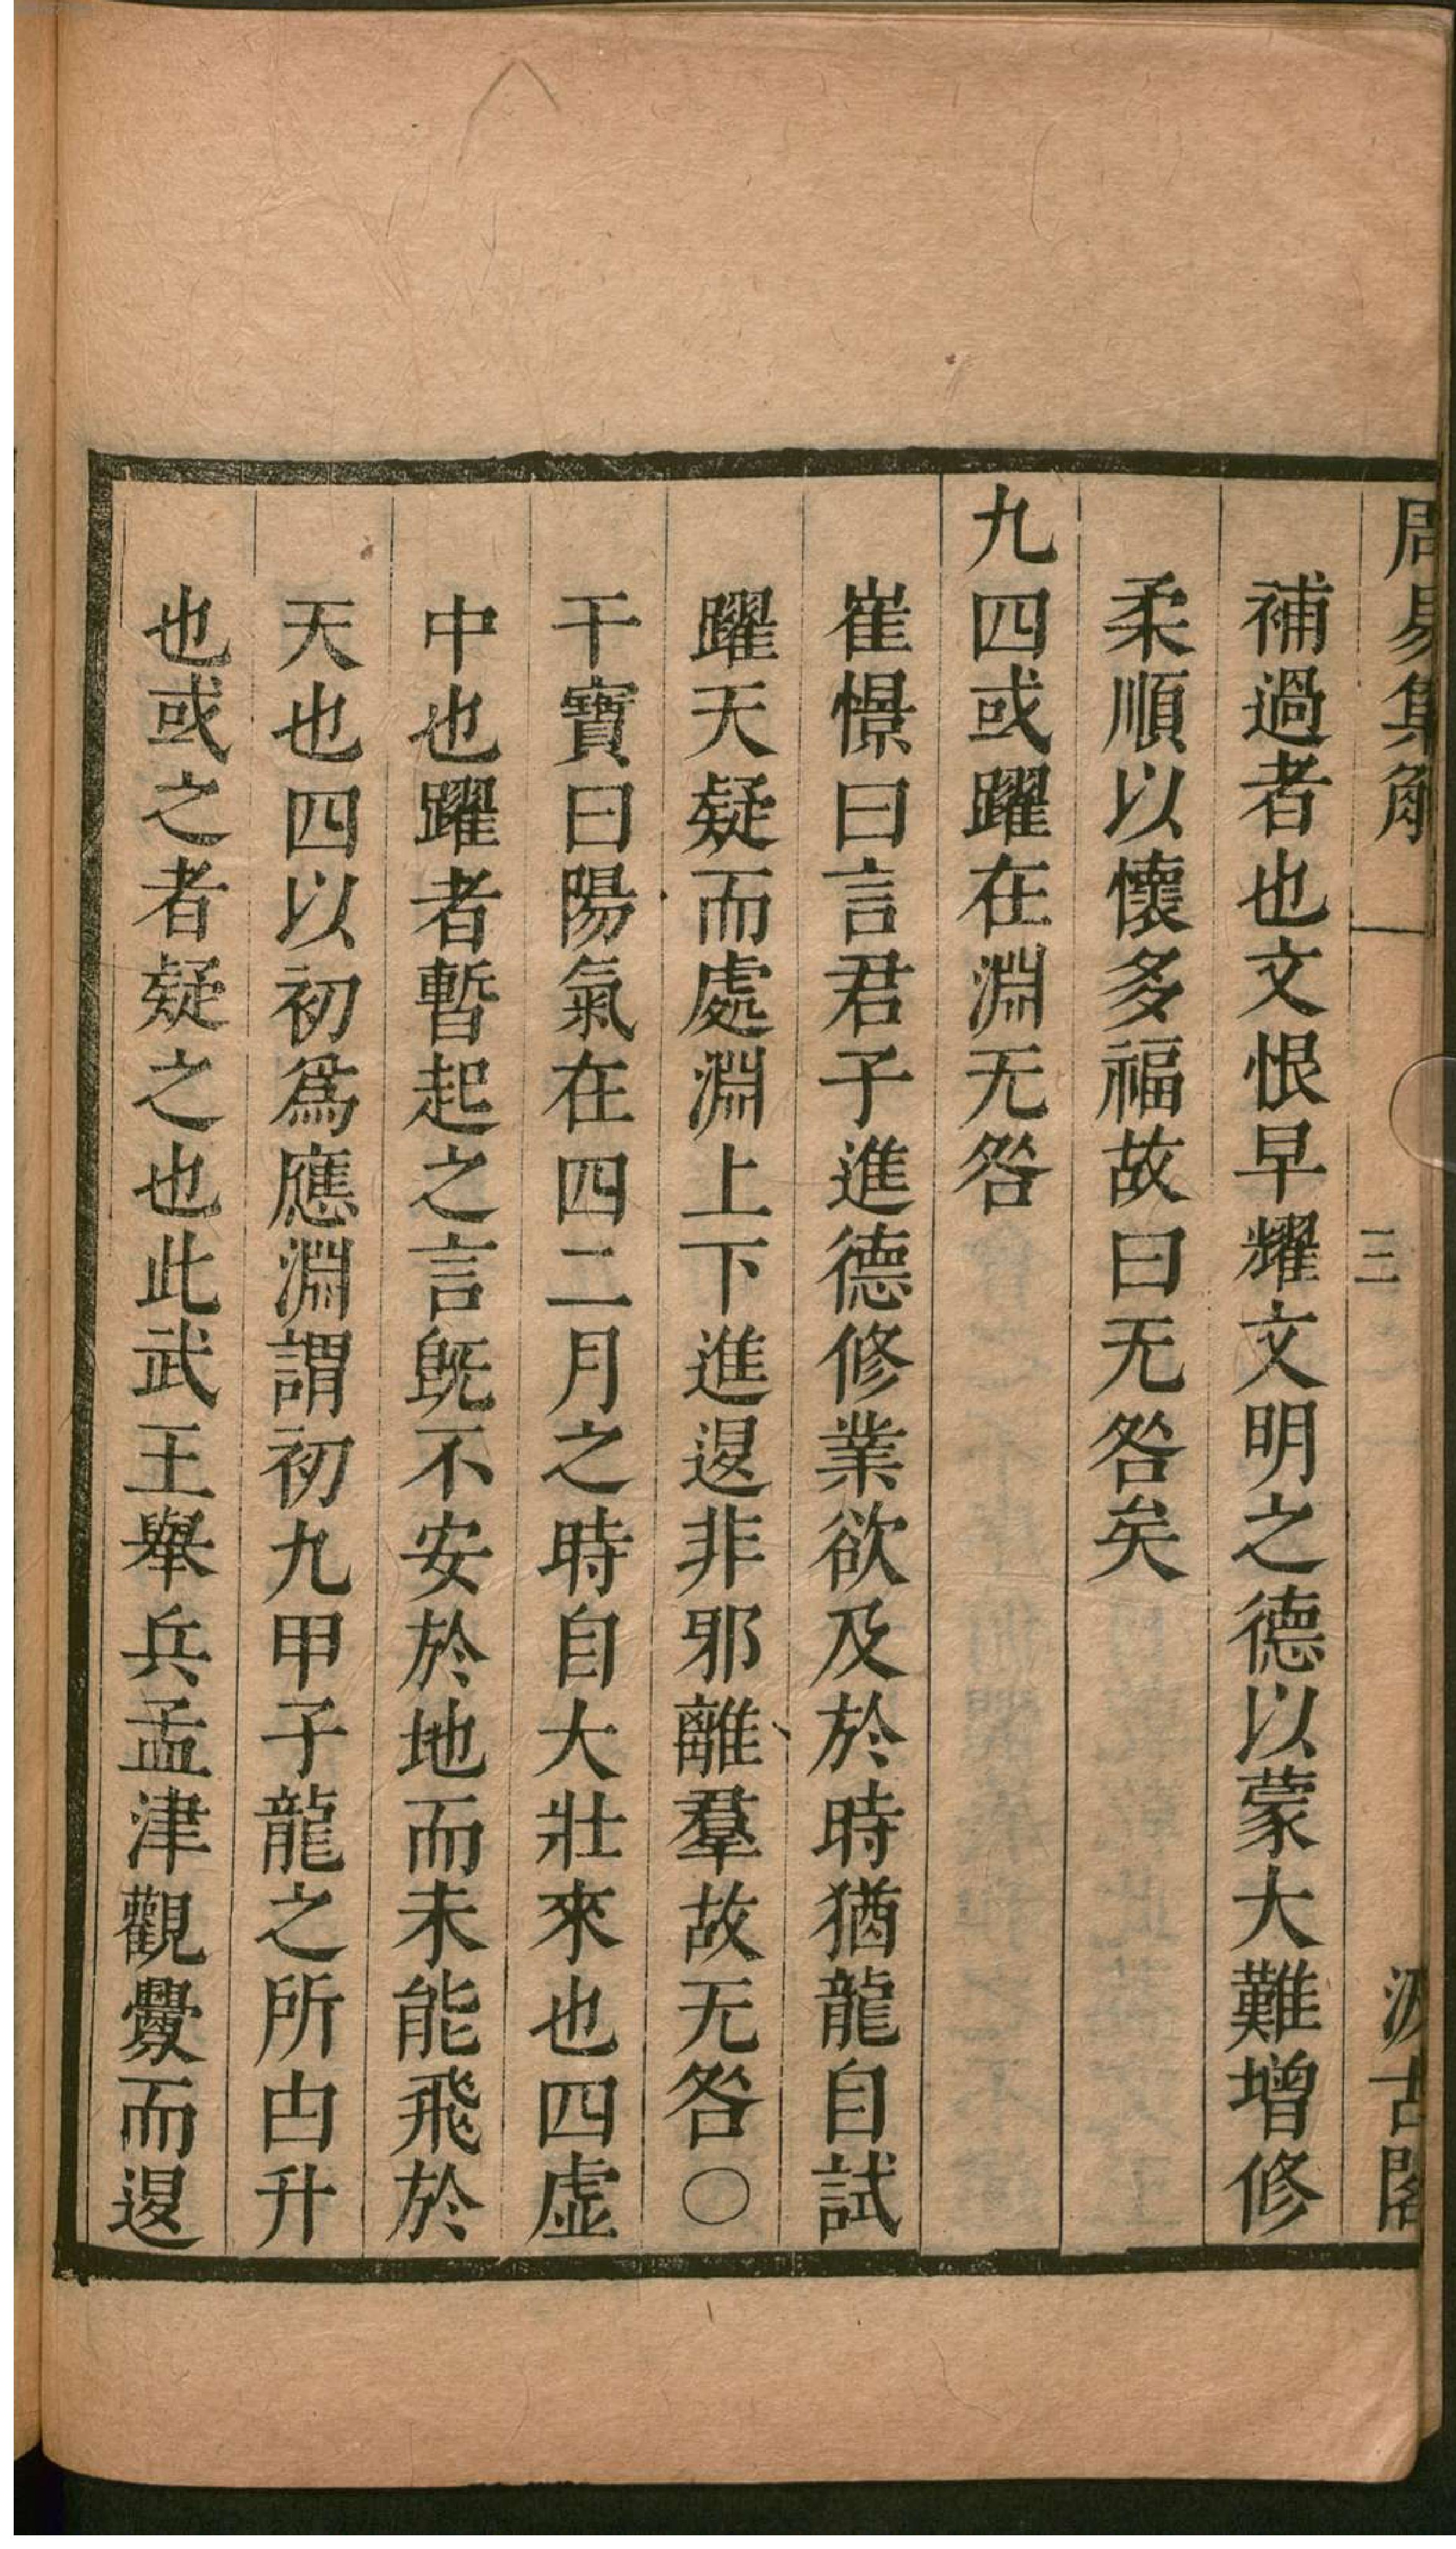 周易集解
三
汲古閣
補過者也文恨早耀文明之德以蒙大難增修
柔順以懷多福故曰无咎矣
九四或躍在淵无咎
崔憬曰言君子進德修業欲及於時猶龍自試
躍天疑而處淵上下進退非邪離羣故无咎○
干寶曰陽氣在四二月之時自大壯來也四虛
中也躍者暫起之言旣不安於地而未能飛於
天也四以初爲應淵謂初九甲子龍之所由升
也或之者疑之也此武王舉兵孟津觀釁而退